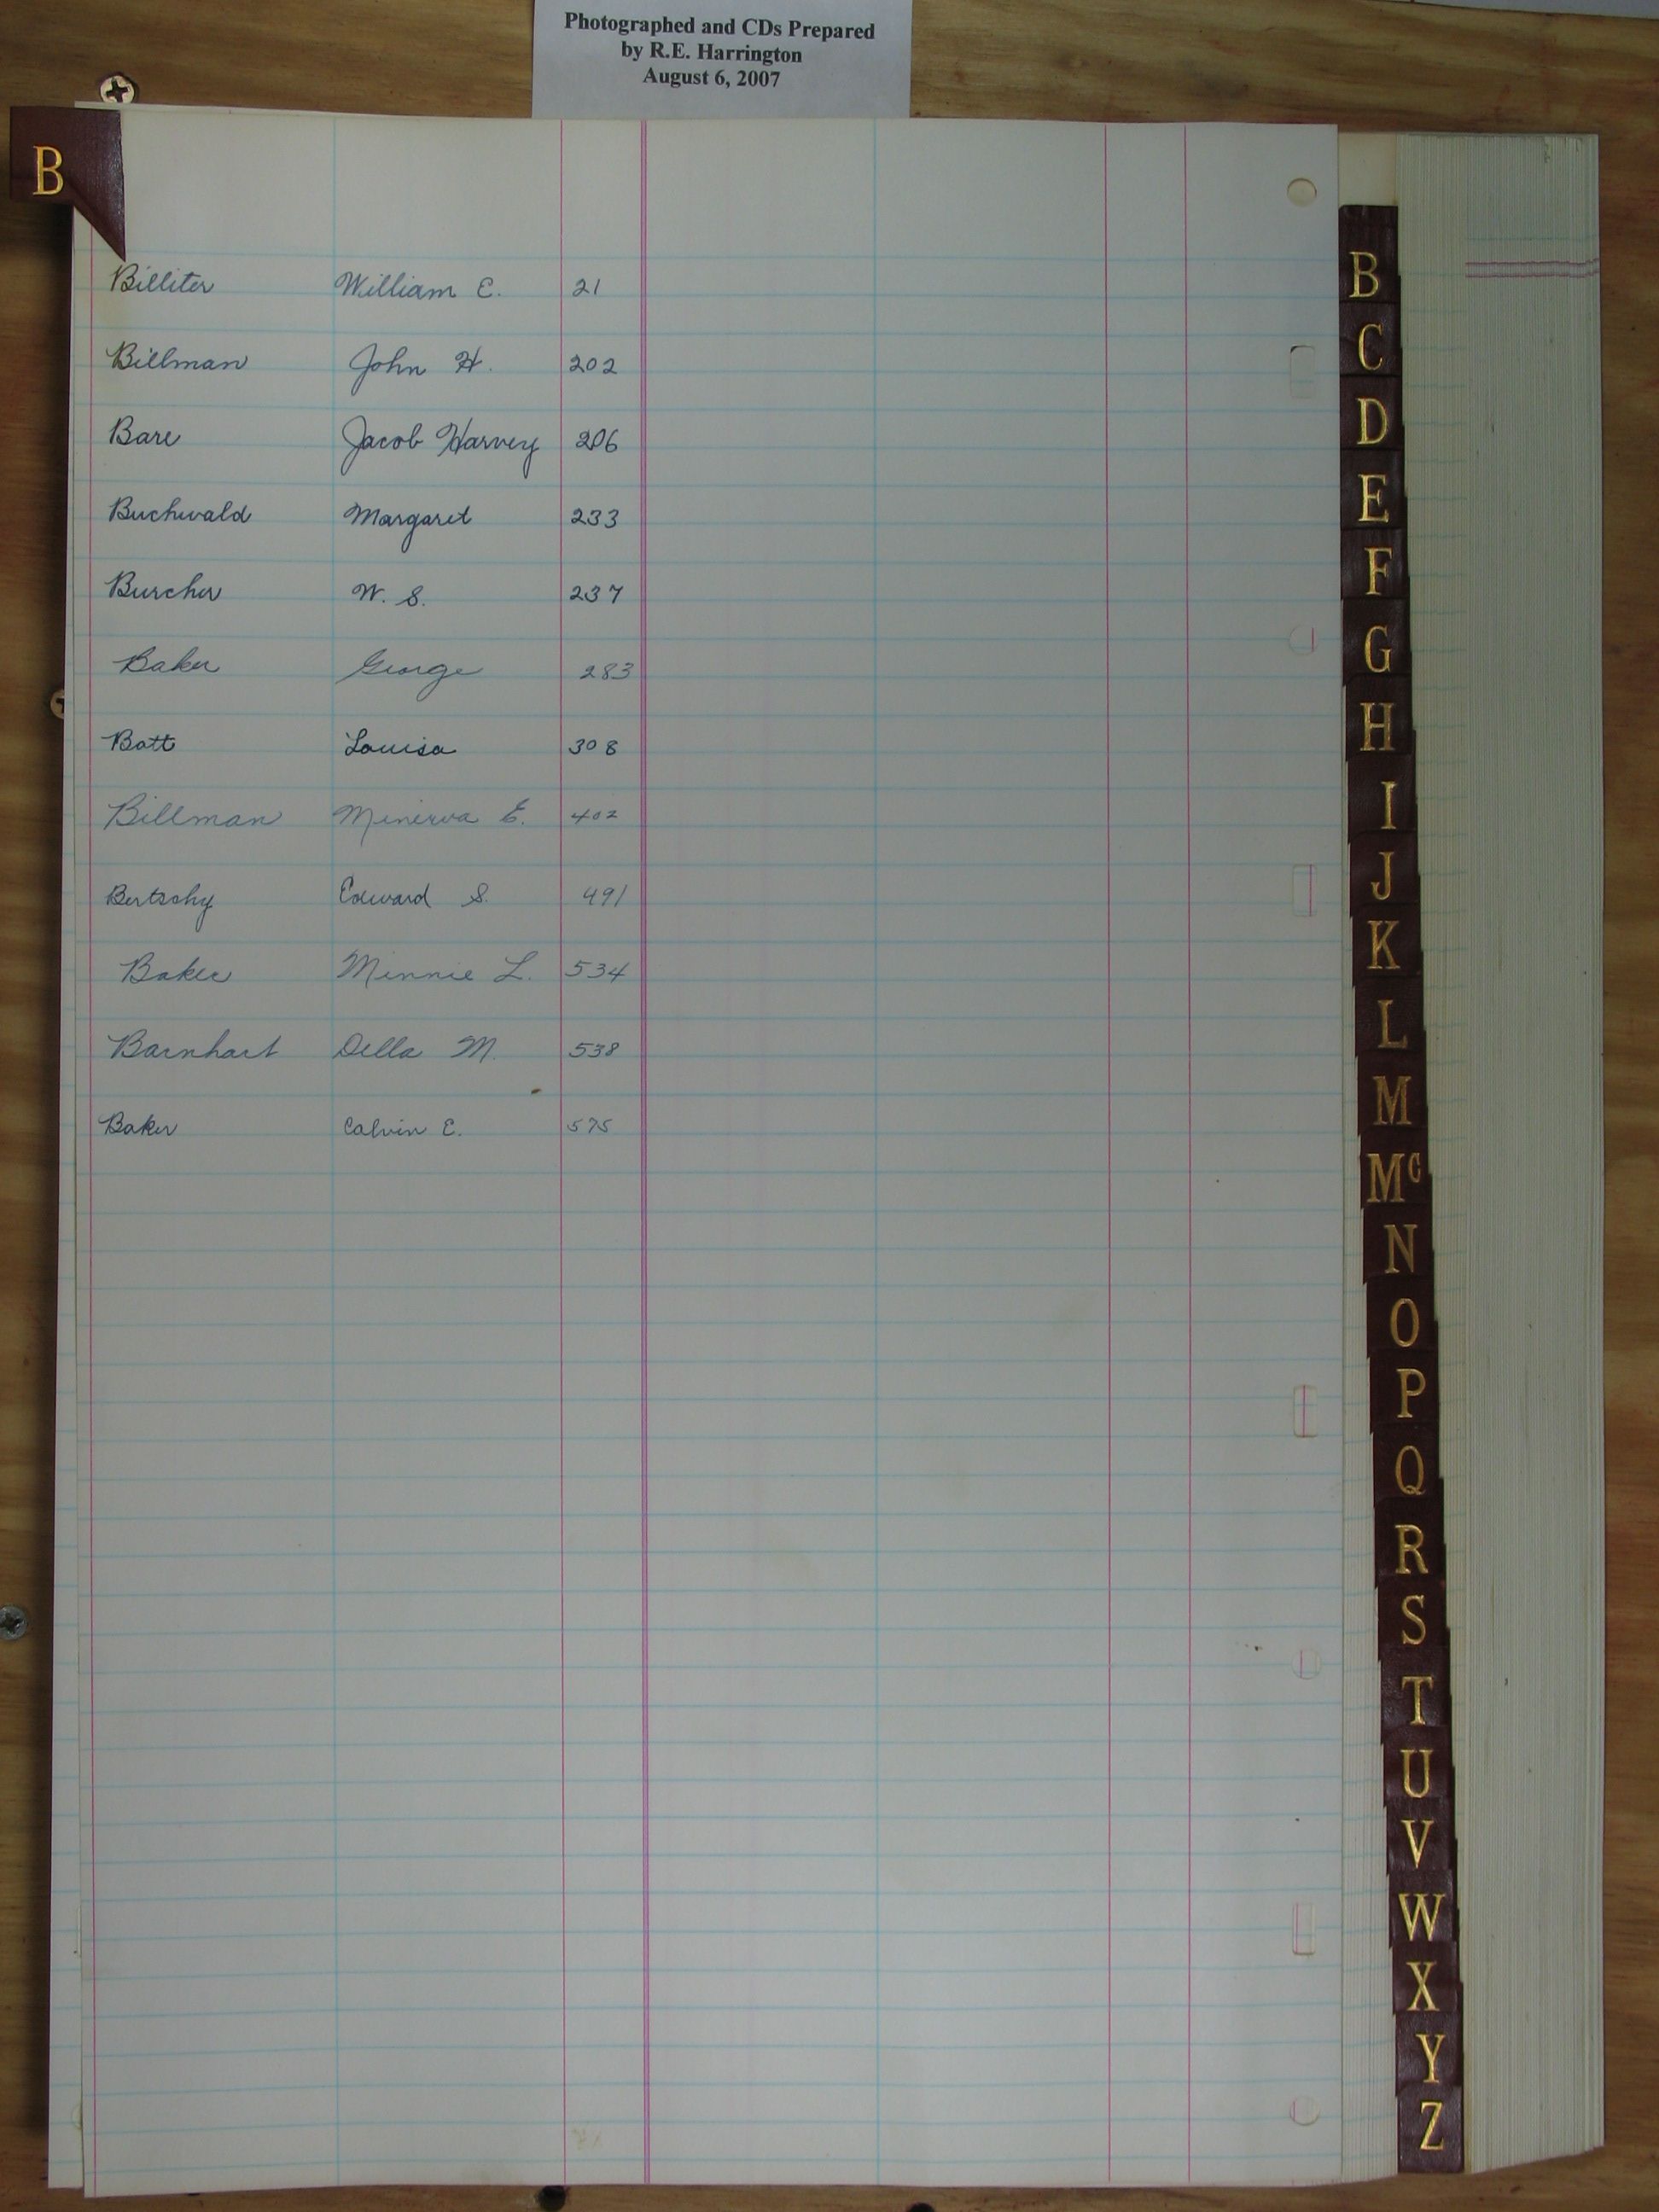 Photographed and CDs Prepared
by R.E. Harrington
August 6, 2007
B
Billiter William E. 21
Billman John H. 202
Bare Jacob Harvey 206
Buchwald Margaret 233
Burcher W. S. 237
Baker George 283
Batt Louisa 308
Billman Minerva E. 402
Bertschy Edward S. 491
Baker Minnie L. 534
Barnhart Della M. 538
Baker Calvin E. 575
B
C
D
E
F
G
H
I
J
K
L
M
Mc
N
O
P
Q
R
S
T
U
V
W
X
Y
Z